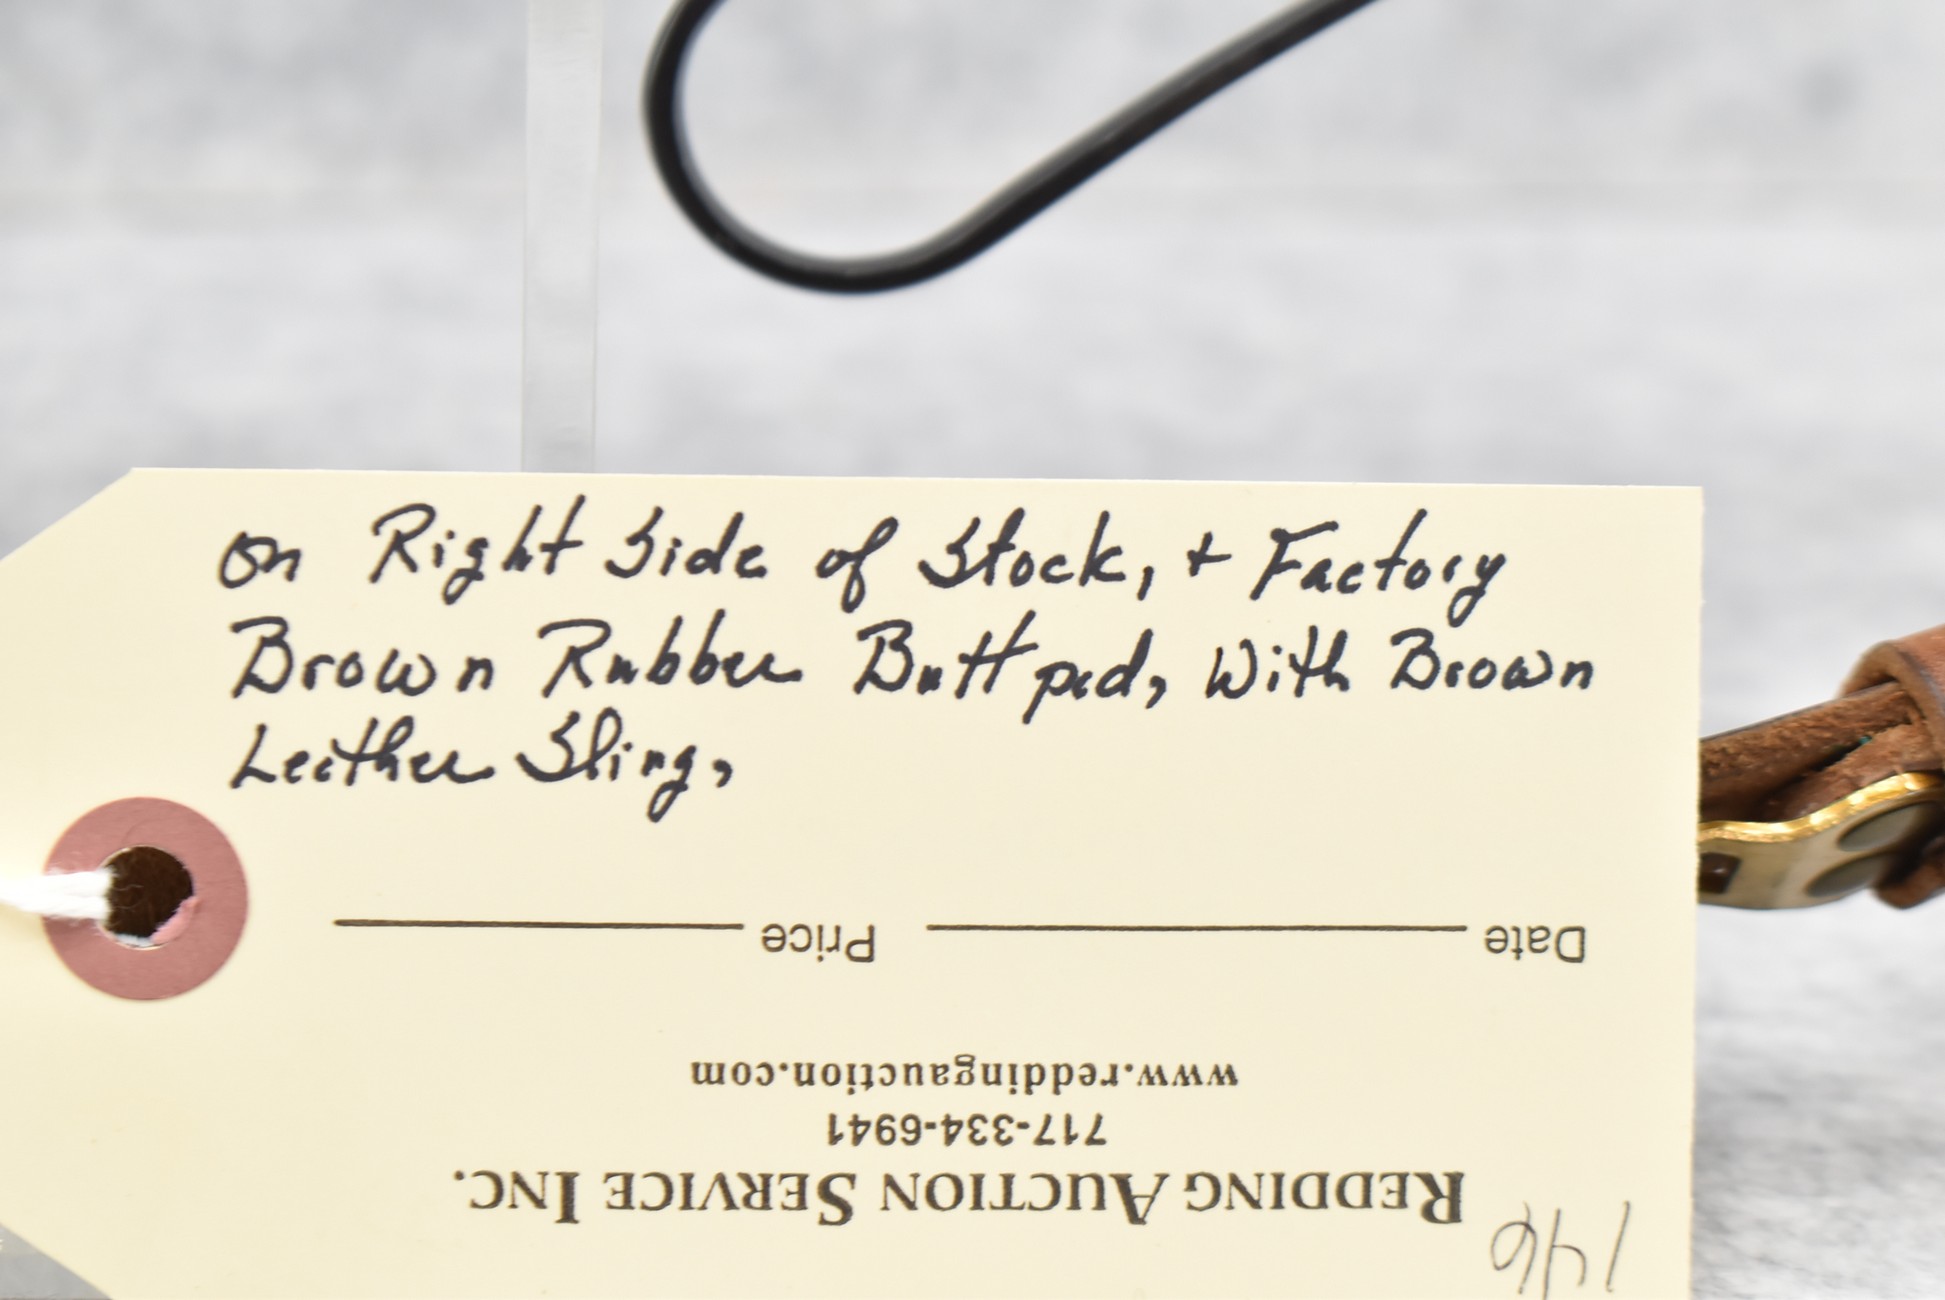 on Right Side of Stock, + Factory
Brown Rubber Buttpad, With Brown
Leather Sling,
146
REDDING AUCTION SERVICE INC.
717-334-6941
www.reddingauction.com
Date Price